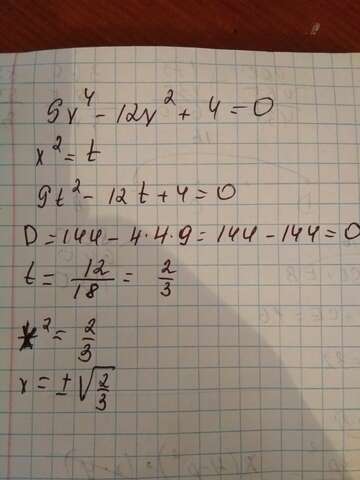 9x⁴ - 12x² + 4 = 0
x² = t
9t² - 12t + 4 = 0
D = 144 - 4·4·9 = 144 - 144 = 0
t = 12/18 = 2/3
x² = 2/3
x = ±√(2/3)